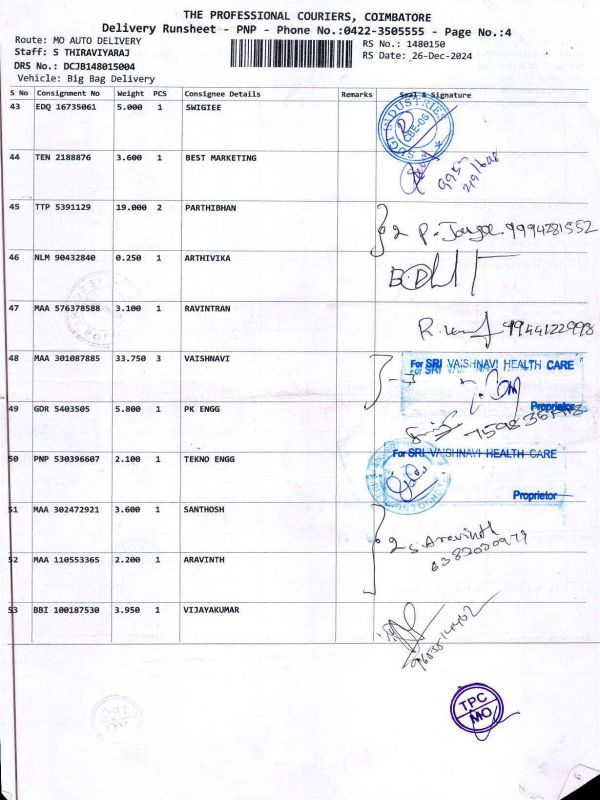 THE PROFESSIONAL COURIERS, COIMBATORE
Delivery Runsheet - PNP - Phone No.:0422-3505555 - Page No.:4
Route: MO AUTO DELIVERY
RS No.: 1480150
Staff: S THIRAVIYARAJ
RS Date: 26-Dec-2024
DRS No.: DCJB148015004
Vehicle: Big Bag Delivery
S No Consignment No Weight PCS Consignee Details Remarks Seal & Signature
43 EDQ 16735061 5.000 1 SWIGIEE
SUGI INDUSTRIES
CBE-06
44 TEN 2188876 3.600 1 BEST MARKETING
45 TTP 5391129 19.000 2 PARTHIBHAN
2 9994281552
46 NLM 90432840 0.250 1 ARTHIVIKA
47 MAA 576378588 3.100 1 RAVINTRAN
9944122998
48 MAA 301087885 33.750 3 VAISHNAVI
For SRI VAISHNAVI HEALTH CARE
Proprietor
49 GDR 5403505 5.800 1 PK ENGG
50 PNP 530396607 2.100 1 TEKNO ENGG
For SRI VAISHNAVI HEALTH CARE
Proprietor
51 MAA 302472921 3.600 1 SANTHOSH
2 S. Aravinth
52 MAA 110553365 2.200 1 ARAVINTH
53 BBI 100187530 3.950 1 VIJAYAKUMAR
TPC
MO